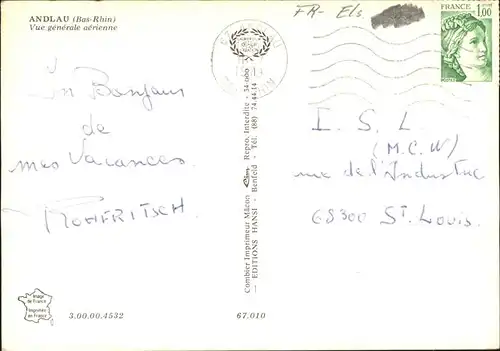 ANDLAU (Bas-Rhin)
Vue générale aérienne
Un Bonjour
de
mes Vacances
ROHFRITSCH
Image
de France
Imprimée
en France
3.00.00.4532
67.010
Combier Imprimeur Mâcon Cim Repro. Interdite - 34-060
EDITIONS HANSI - Benfeld - Tél. (88) 74.44.14
FR- Els
FRANCE
1,00
I. S. L
(M.C.W)
rue de l'Industrie
68300 St. Louis.